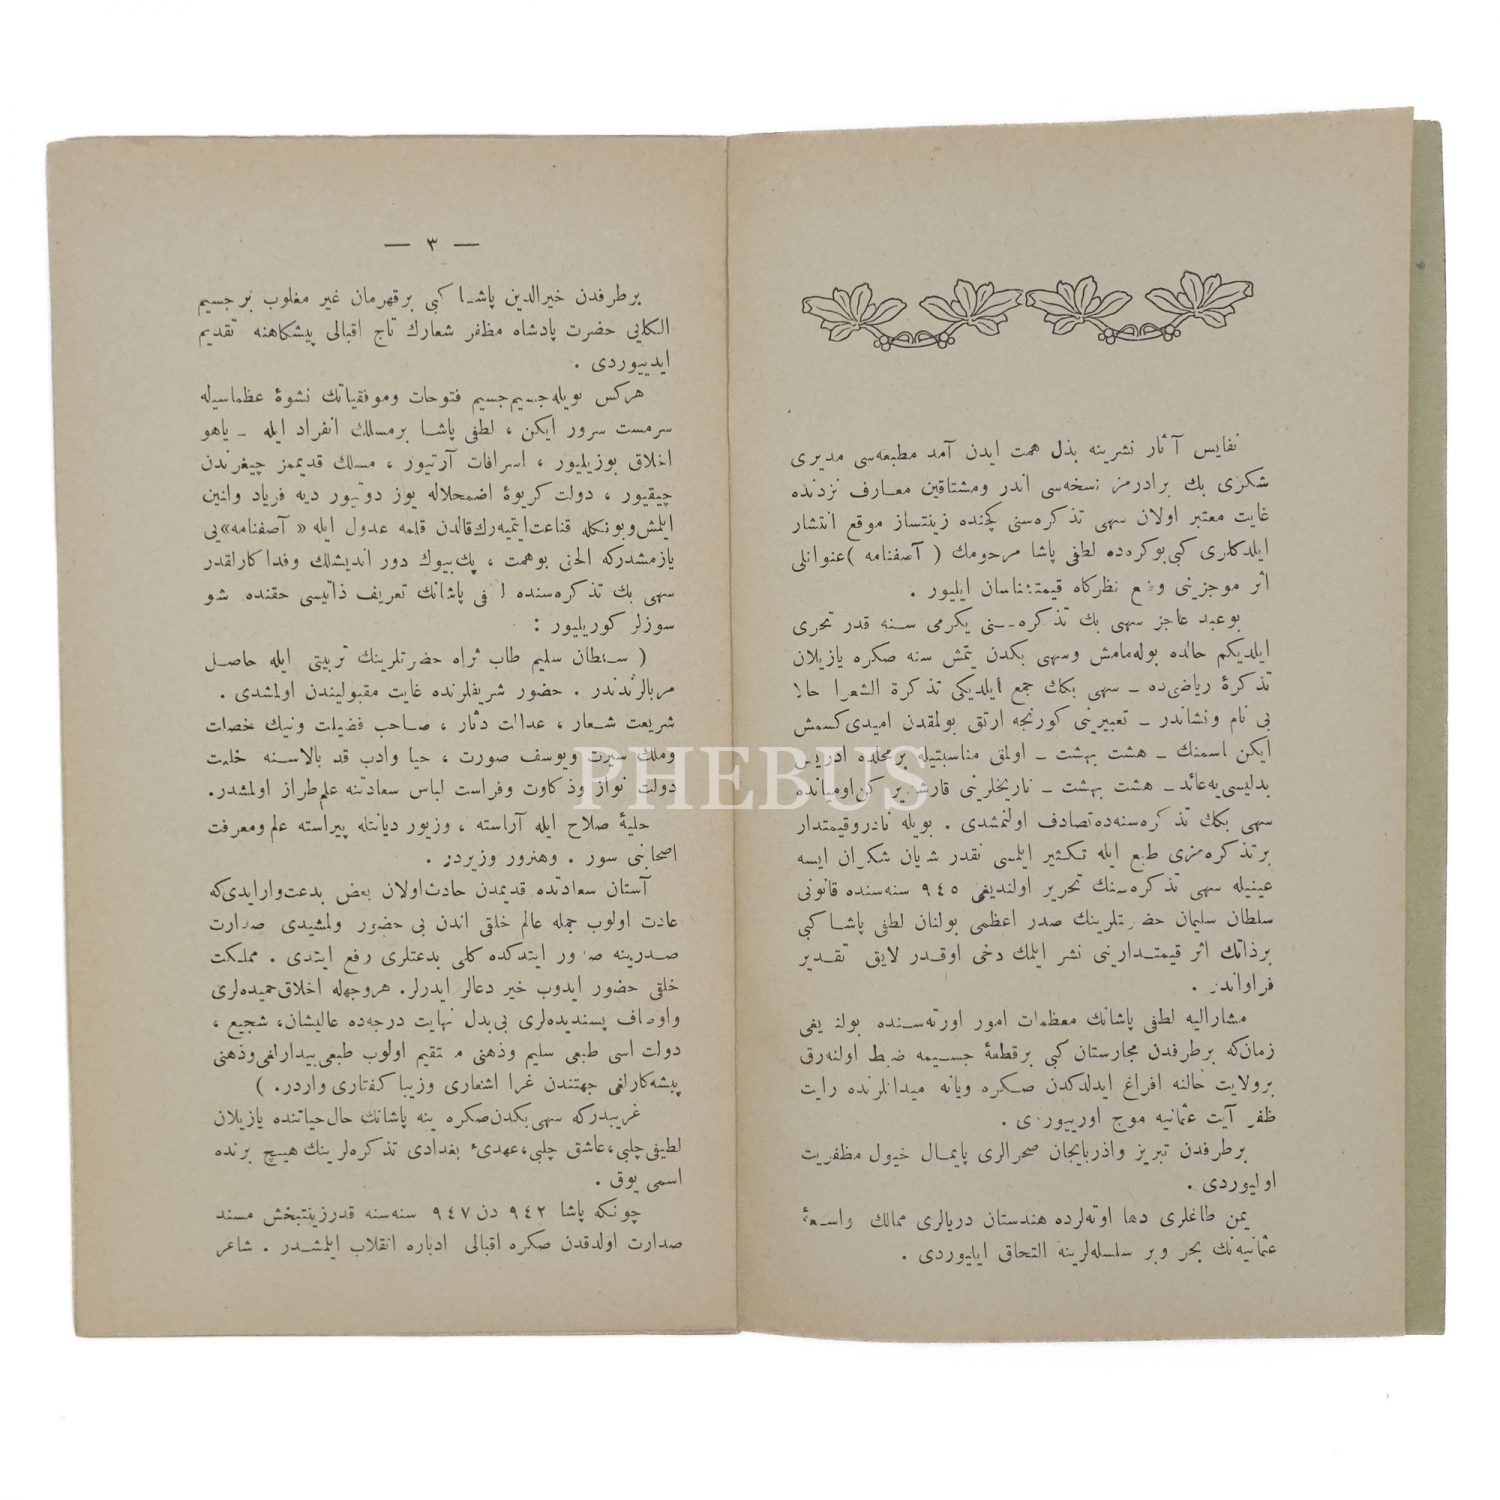 نفايس آثار نشرينه بذل همت ايدن آمد مطبعه‌سى مديرى
شكرى بك برادرمز نسخه‌سى اندر ومشتاقين معارف نزدنده
غايت معتبر اولان سهى تذكره‌سنى كچنده زينتساز موقع انتشار
ايلدكلرى كبى بوكره‌ده لطفى پاشا مرحومك ( آصفنامه ) عنوانلى
اثر موجزينى وضع نظركاه قيمتشناسان ايليور .
بوعبد عاجز سهى بك تذكره‌سنى يكرمى سنه قدر تحرى
ايلديكم حالده بوله‌مامش وسهى بكدن يتمش سنه صكره يازيلان
تذكرهٔ رياضى‌ده ـ سهى بكك جمع ايلديكى تذكرة الشعرا حالا
بى نام ونشاندر ـ تعبيرينى كورنجه ارتق بولمقدن اميدى كسمش
ايكن اسمنك ـ هشت بهشت ـ اولمق مناسبتيله برمحلده ادريس
بدليسى‌يه عائد ـ هشت بهشت ـ تاريخلرينى قارشدير كن اوميانده
سهى بكك تذكره‌سنه‌ده تصادف اولنمشدى . بويله نادر وقيمتدار
برتذكره‌مزى طبع ايله تكثير ايلمسى نقدر شايان شكران ايسه
عينيله سهى تذكره‌سنك تحرير اولنديغى ٩٤٥ سنه‌سنده قانونى
سلطان سليمان حضرتلرينك صدر اعظمى بولنان لطفى پاشا كبى
برذاتك اثر قيمتدارينى نشر ايلمك دخى اوقدر لايق تقدير
فراواندر .
مشاراليه لطفى پاشانك معظمات امور اورته‌سنده بولنديغى
زمان‌كه برطرفدن مجارستان كبى برقطعهٔ جسيمه ضبط اولنه‌رق
برولايت حالنه افراغ ايدلدكدن صكره ويانه ميدانلرنده رايت
ظفر آيت عثمانيه موج اورييوردى .
برطرفدن تبريز واذربايجان صحرالرى پايمال خيول مظفريت
اوليوردى .
يمن طاغلرى دها اوته‌لرده هندستان دريالرى ممالك واسعهٔ
عثمانيه‌نك بحر وبر سلسله‌لرينه التحاق ايليوردى .
— ٣ —
برطرفدن خيرالدين پاشا كبى برقهرمان غير مغلوب برجسيم
الكايى حضرت پادشاه مظفر شعارك تاج اقبالى پيشكاهنه تقديم
ايدييوردى .
هركس بويله جسيم جسيم فتوحات وموفقياتك نشوهٔ عظماسيله
سرمست سرور ايكن ، لطفى پاشا برمسلك انفراد ايله ـ ياهو
اخلاق بوزيليور ، اسرافات آرتيور ، مسلك قديممز چيغرندن
چيقيور ، دولت كريوهٔ اضمحلاله يوز دوتيور ديه فرياد وانين
ايلمش وبونكله قناعت ايتميه‌رك قالدن قلمه عدول ايله « آصفنامه »يى
يازمشدركه الحق بوهمت ، پك بيوك دور انديشلك وفداكارلقدر
سهى بك تذكره‌سنده لطفى پاشانك تعريف ذاتيسى حقنده شو
سوزلر كوريليور :
( سلطان سليم طاب ثراه حضرتلرينك تربيتى ايله حاصل
مربالرندندر . حضور شريفلرنده غايت مقبوليندن اولمشدى .
شريعت شعار ، عدالت دثار ، صاحب فضيلت ونيك خصلت
وملك سيرت ويوسف صورت ، حيا وادب قد بالاسنه خلعت
دولت نواز وذكاوت وفراست لباس سعادتنه علم طراز اولمشدر.
حليهٔ صلاح ايله آراسته ، وزيور ديانتله پيراسته علم ومعرفت
اصحابنى سور . وهنرور وزيردر .
آستان سعادتده قديمدن حادث اولان بعض بدعت وارايدى‌كه
عادت اولوب جمله عالم خلقى اندن بى حضور ولمشيدى صدارت
صدرينه صدور ايتدكده كلى بدعتلرى رفع ايتدى . مملكت
خلقى حضور ايدوب خير دعالر ايدرلر. هروجهله اخلاق حميده‌لرى
واوصاف پسنديده‌لرى بى‌بدل نهايت درجه‌ده عاليشان، شجيع ،
دولت اسى طبعى سليم وذهنى مستقيم اولوب طبعى بيدارلغى وذهنى
پيشه‌كارلغى جهتندن غرا اشعارى وزيبا كفتارى واردر. )
غريبدركه سهى بكدن صكره ينه پاشانك حال حياتنده يازيلان
لطيفى چلبى، عاشق چلبى، عهدىء بغدادى تذكره‌لرينك هيچ برنده
اسمى يوق .
چونكه پاشا ٩٤٢ دن ٩٤٧ سنه‌سنه قدر زينتبخش مسند
صدارت اولدقدن صكره اقبالى ادباره انقلاب ايلمشدر . شاعر
PHEBUS